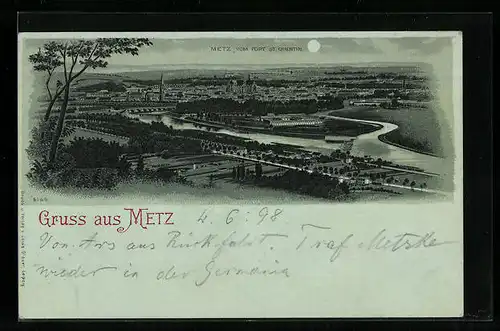 METZ VOM FORT ST. QUENTIN.
Gruss aus METZ
4. 6. 98
Von Ars aus Rückfahrt. Traf Metzke
wieder in der Germania